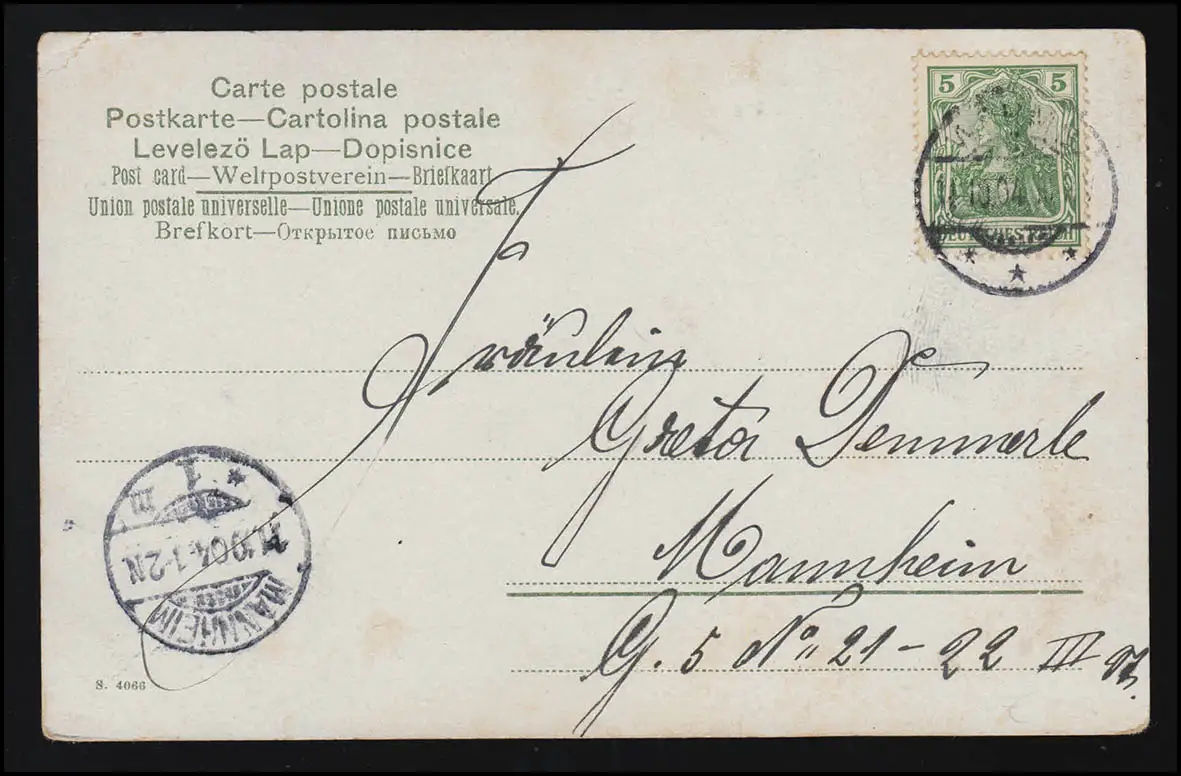 Carte postale
Postkarte—Cartolina postale
Levelező Lap—Dopisnice
Post card—Weltpostverein—Briefkaart
Union postale universelle—Unione postale universale.
Brefkort—Открытое письмо
5 5
DEUTSCHES REICH
11.10.04
Fräulein
Greta Demmerle
Mannheim
G. 5 No 21 – 22 III
* 1 III
11.10.04. 1-2N.
MANNHEIM
S. 4066